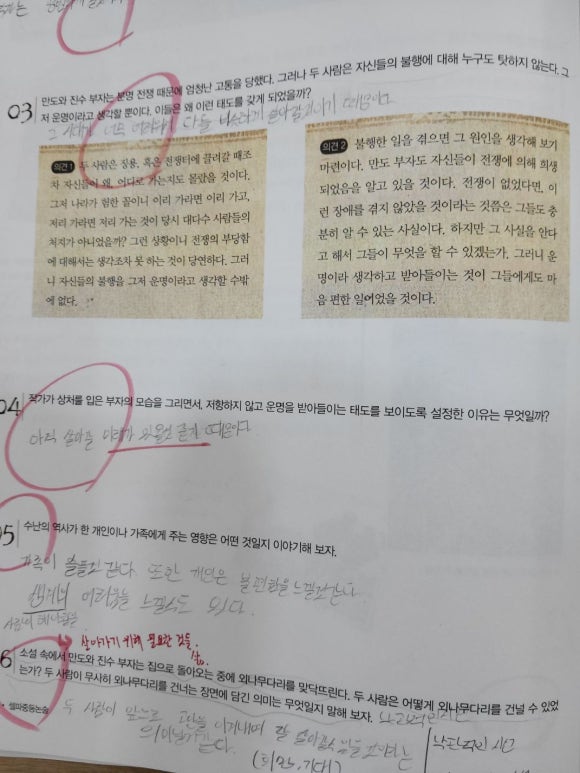 03 만도와 진수 부자는 분명 전쟁 때문에 엄청난 고통을 당했다. 그러나 두 사람은 자신들의 불행에 대해 누구도 탓하지 않는다. 그
저 운명이라고 생각할 뿐이다. 이들은 왜 이런 태도를 갖게 되었을까?
그 시대가 너무 다들 때문이다
의견 1 두 사람은 징용, 혹은 전쟁터에 끌려갈 때조
차 자신들이 왜, 어디로 가는지도 몰랐을 것이다.
그저 나라가 험한 꼴이니 이리 가라면 이리 가고,
저리 가라면 저리 가는 것이 당시 대다수 사람들의
처지가 아니었을까? 그런 상황이니 전쟁의 부당함
에 대해서는 생각조차 못 하는 것이 당연하다. 그러
니 자신들의 불행을 그저 운명이라고 생각할 수밖
에 없다.
의견 2 불행한 일을 겪으면 그 원인을 생각해 보기
마련이다. 만도 부자도 자신들이 전쟁에 의해 희생
되었음을 알고 있을 것이다. 전쟁이 없었다면, 이
런 장애를 겪지 않았을 것이라는 것쯤은 그들도 충
분히 알 수 있는 사실이다. 하지만 그 사실을 안다
고 해서 그들이 무엇을 할 수 있겠는가. 그러니 운
명이라 생각하고 받아들이는 것이 그들에게도 마
음 편한 일이었을 것이다.
04 작가가 상처를 입은 부자의 모습을 그리면서, 저항하지 않고 운명을 받아들이는 태도를 보이도록 설정한 이유는 무엇일까?
아직 살아갈 미래가 있을 때문이다
05 수난의 역사가 한 개인이나 가족에게 주는 영향은 어떤 것일지 이야기해 보자.
가족이 힘들것 같다. 또한 개인은 불편함을 느낄것 같다.
생계의 어려움을 느낄수도 있다.
살아가기 위해 필요한 것들.
06 소설 속에서 만도와 진수 부자는 집으로 돌아오는 중에 외나무다리를 맞닥뜨린다. 두 사람은 어떻게 외나무다리를 건널 수 있었
는가? 두 사람이 무사히 외나무다리를 건너는 장면에 담긴 의미는 무엇일지 말해 보자.
셀파중등논술
두 사람이 앞으로 고난을 이겨내며 잘 살아갈수 있음을
의미인거 같다.
(희망, 기대)